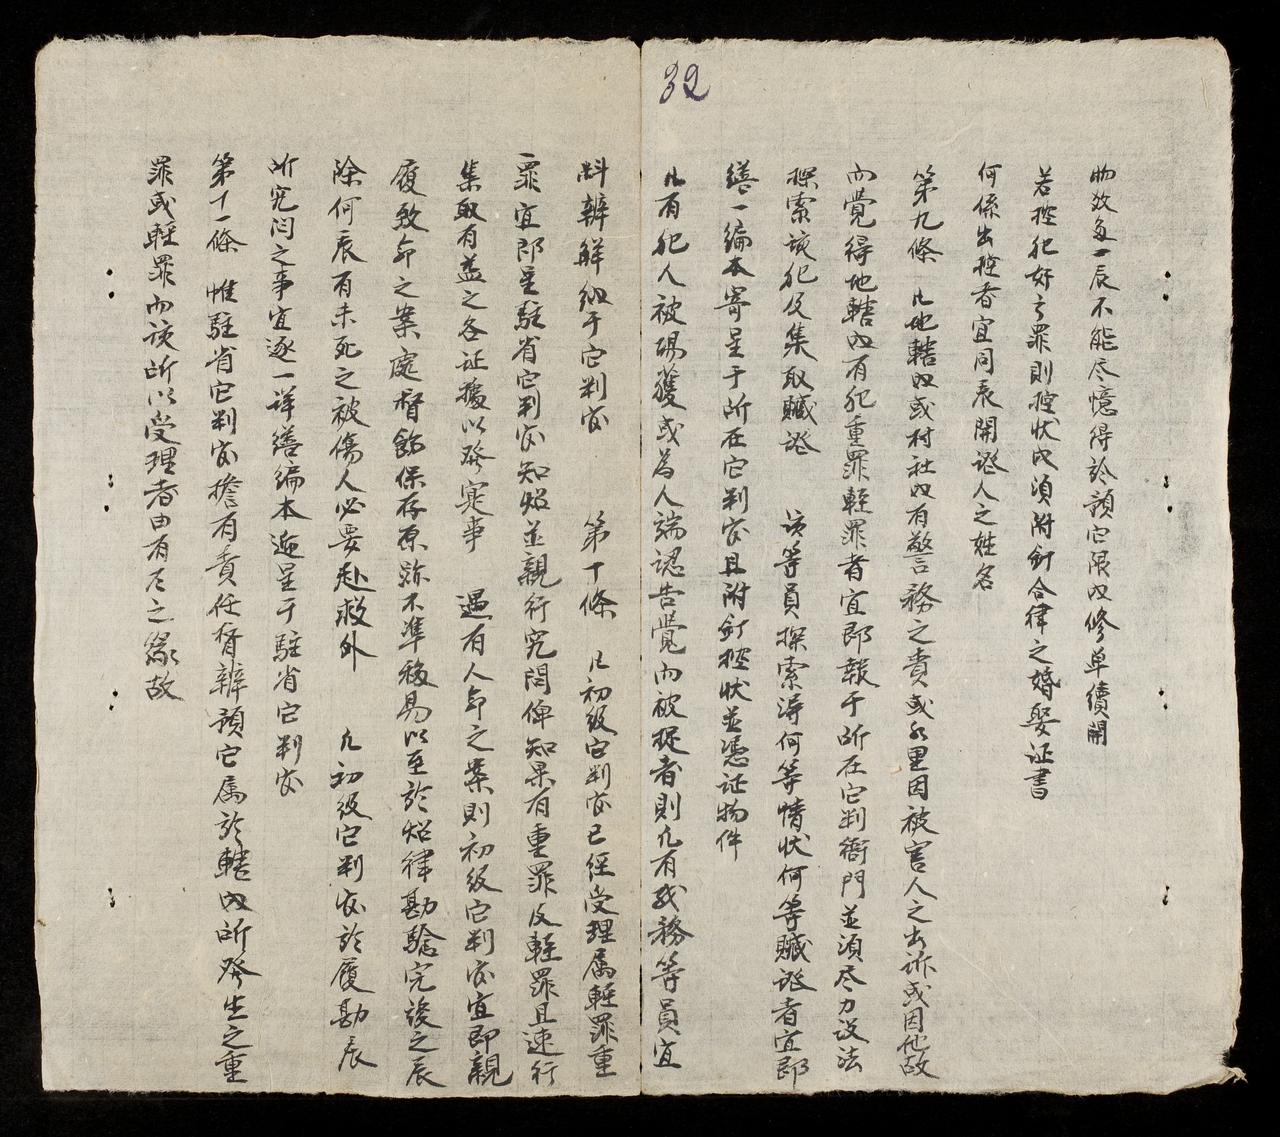 32
物数多一辰不能尽憶得於預它限内修单續開
若控犯奸之罪則控状内須附釘合律之婚娶证書
何係出控者宜同表開證人之姓名
第九條 凡地轄内或村社内有警務之責或 里因被害人之出诉或因他故
而覺得地轄内有犯重罪輕罪者宜即報于所在它判衙門並須尽力设法
探索该犯及集取贓證 该等員探索淂何等情状何等贓證者宜即
繕一編本寄呈于所在它判官且附釘控状並憑证物件
凡有犯人被碍獲或为人端認告覺而被捉者則凡有我務等員宜
料辦解納于它判官 第十條 凡初级它判官已經受理属輕罪重
罪宜即呈駐省它判官知炤並親行究問俾知果有重罪及輕罪且速行
集取有益之各证據以發寔事 遇有人命之案則初级它判官宜即親
履致命之案處督飭保存原跡不準移易以至於炤律勘驗完後之辰
除何辰有未死之被傷人必要赴救外 凡初级它判官於履勘辰
所究问之事宜逐一详繕編本遞呈于駐省它判官
第十一條 惟駐省它判官擔有責任督辦預它属於轄内所發生之重
罪或輕罪而该所以受理者由有左之緣故